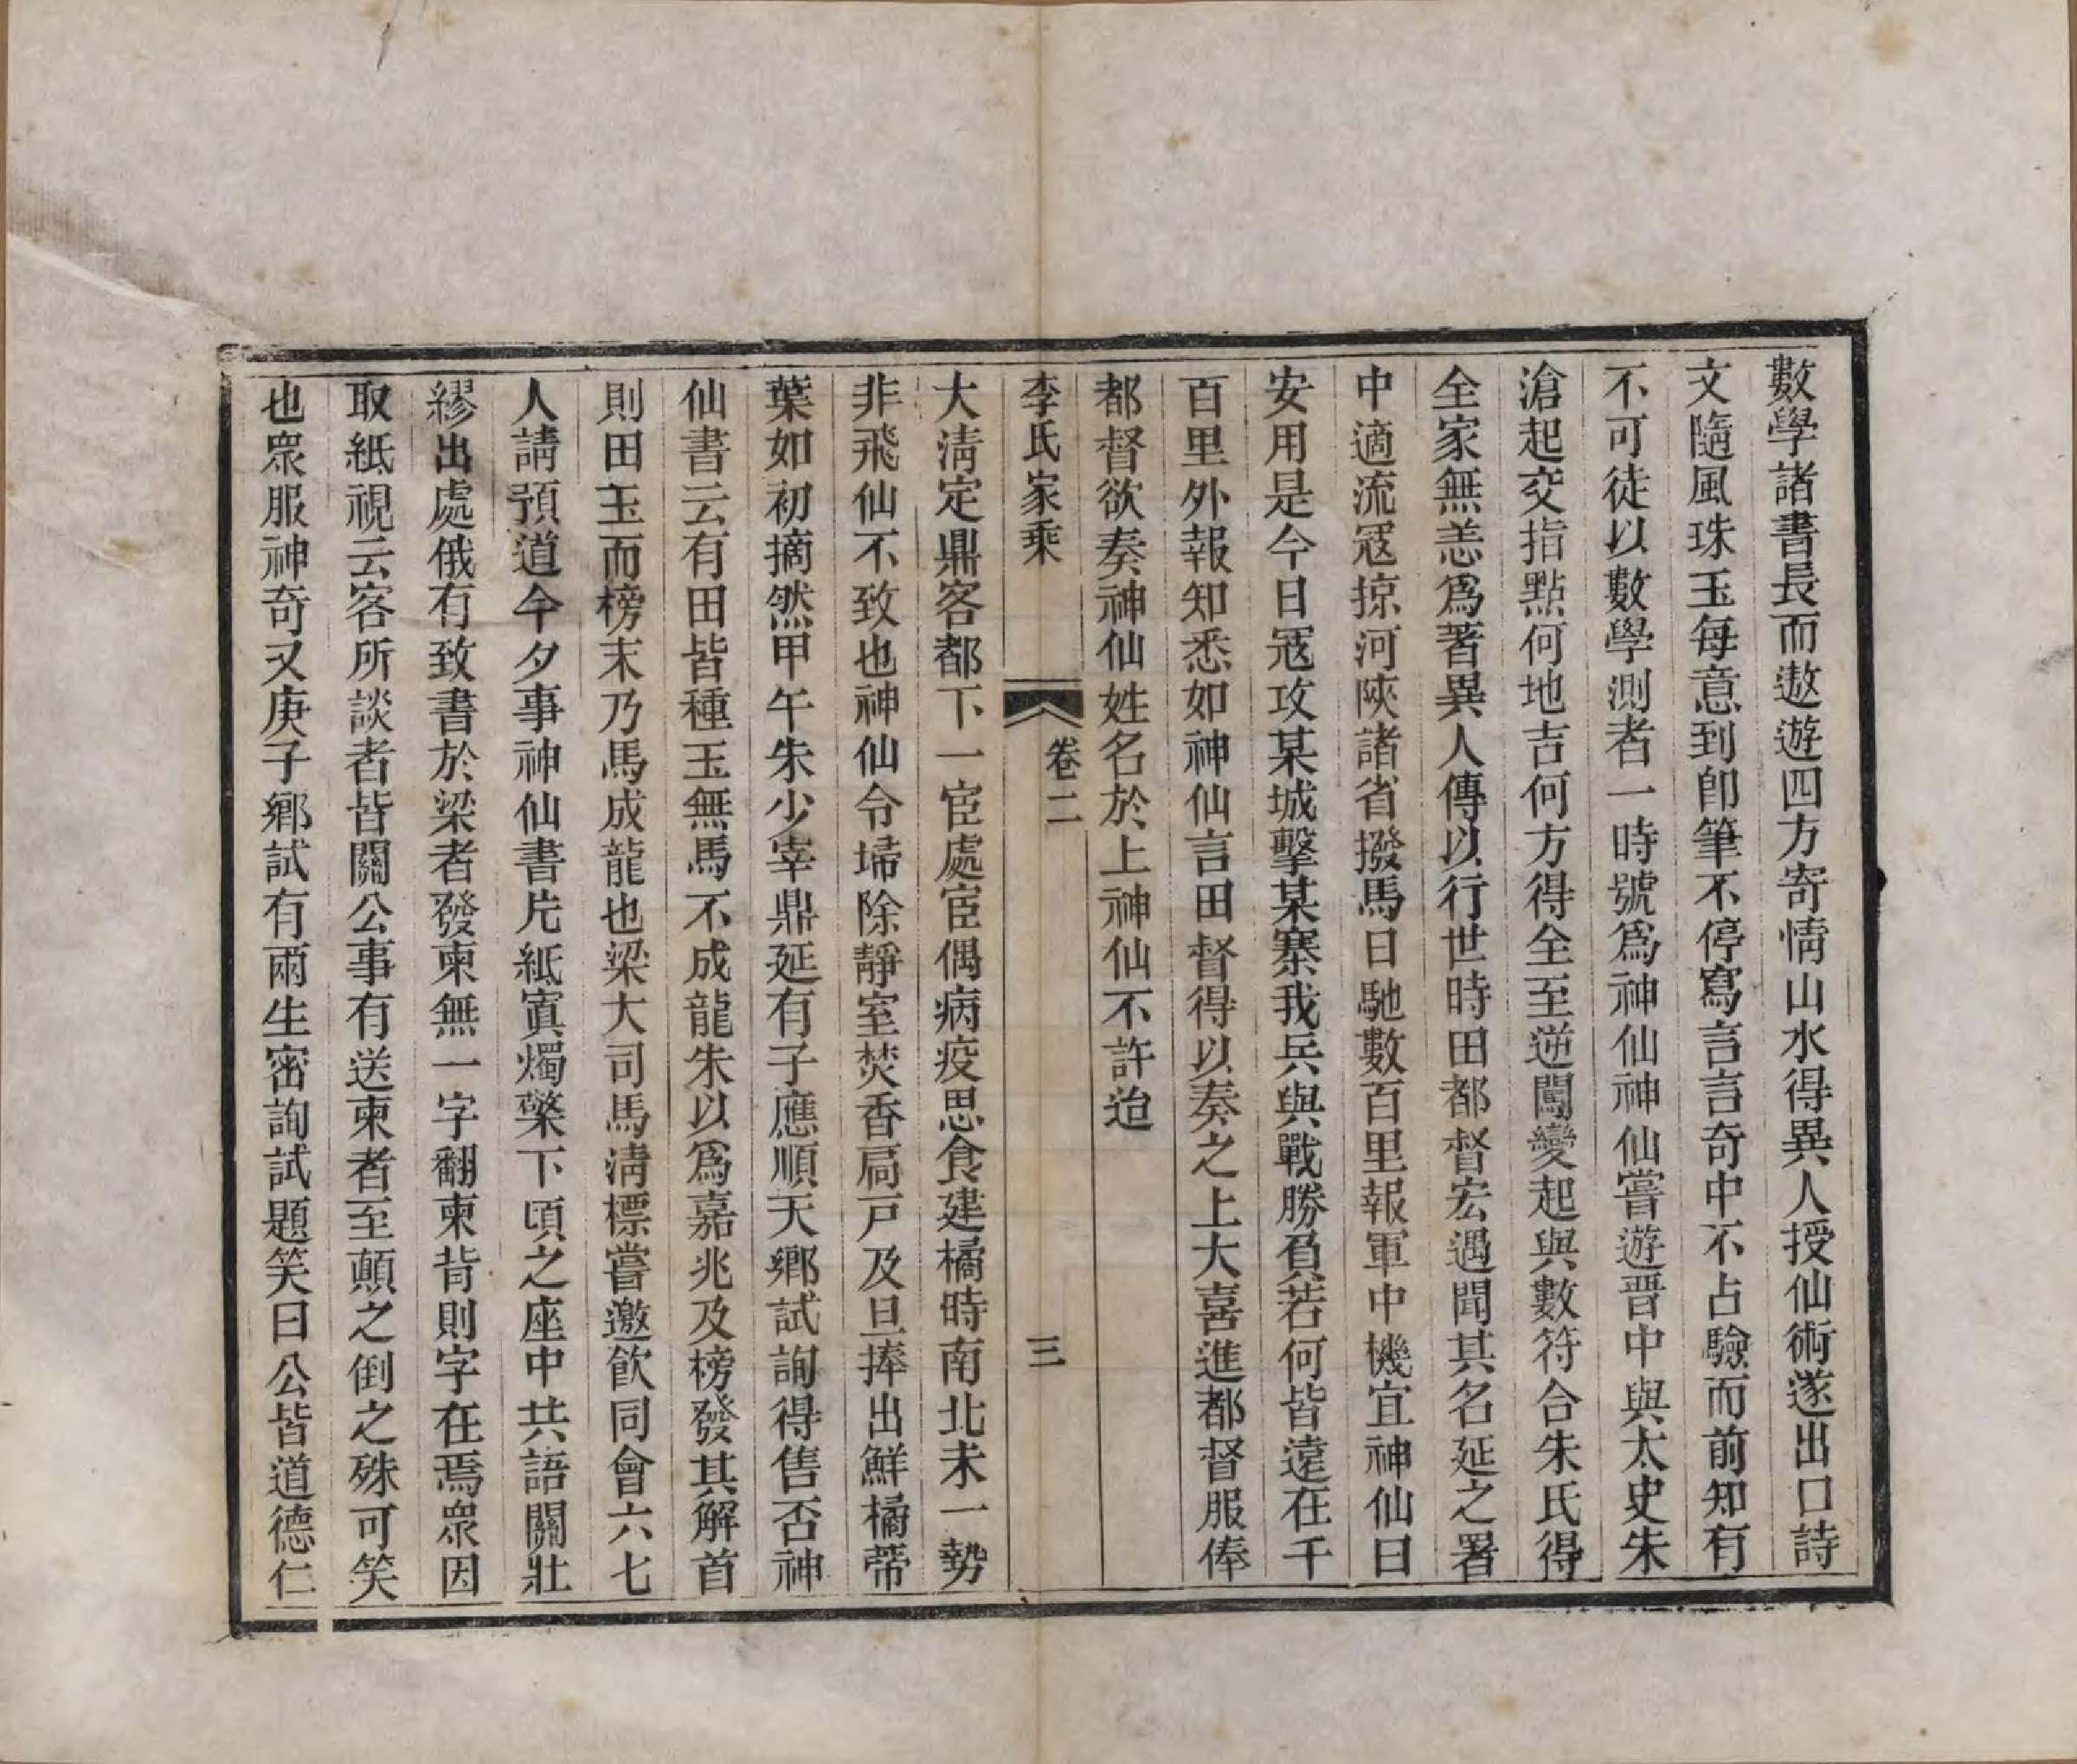 數學諸書長而遨遊四方寄情山水得異人授仙術遂出口詩
文隨風珠玉每意到卽筆不停寫言言奇中不占驗而前知有
不可徒以數學測者一時號爲神仙神仙嘗遊晋中與太史朱
滄起交指點何地吉何方得全至逆闖變起與數符合朱氏得
全家無恙爲著異人傳以行世時田都督宏遇聞其名延之署
中適流寇掠河陝諸省撥馬日馳數百里報軍中機宜神仙曰
安用是今日寇攻某城擊某寨我兵與戰勝負若何皆遠在千
百里外報知悉如神仙言田督得以奏之上大喜進都督服俸
都督欲奏神仙姓名於上神仙不許迨
李氏家乘
卷二
三
大淸定鼎客都下一宦處宦偶病疫思食建橘時南北未一勢
非飛仙不致也神仙令埽除靜室焚香扃戸及旦捧出鮮橘蒂
葉如初摘然甲午朱少宰鼎延有子應順天鄉試詢得售否神
仙書云有田皆種玉無馬不成龍朱以爲嘉兆及榜發其解首
則田玉而榜末乃馬成龍也梁大司馬淸標嘗邀飮同會六七
人請預道今夕事神仙書片紙寘燭檠下頃之座中共語關壯
繆出處俄有致書於梁者發柬無一字翻柬背則字在焉眾因
取紙視云客所談者皆關公事有送柬者至顚之倒之殊可笑
也眾服神奇又庚子鄉試有兩生密詢試題笑曰公皆道德仁